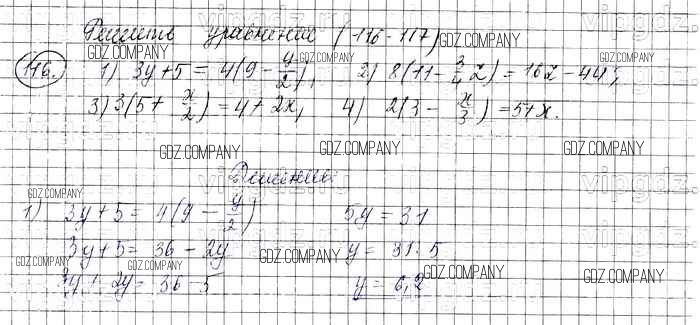 Решить уравнения (116-117)
116. 1) 3y+5 = 4(9 - y/2), 2) 8(11 - 3/4 z) = 16z - 44;
3) 3(5+ x/2) = 4 + 2x, 4) 2(3 - x/3) = 5+x.
Решение:
1) 3y+5 = 4(9 - y/2) 5y = 31
3y+5 = 36 - 2y y = 31:5
3y + 2y = 36 - 5 y = 6,2
GDZ.COMPANY
GDZ.COMPANY
GDZ.COMPANY
GDZ.COMPANY
GDZ.COMPANY
GDZ.COMPANY
GDZ.COMPANY
GDZ.COMPANY
GDZ.COMPANY
GDZ.COMPANY
GDZ.COMPANY
GDZ.COMPANY
GDZ.COMPANY